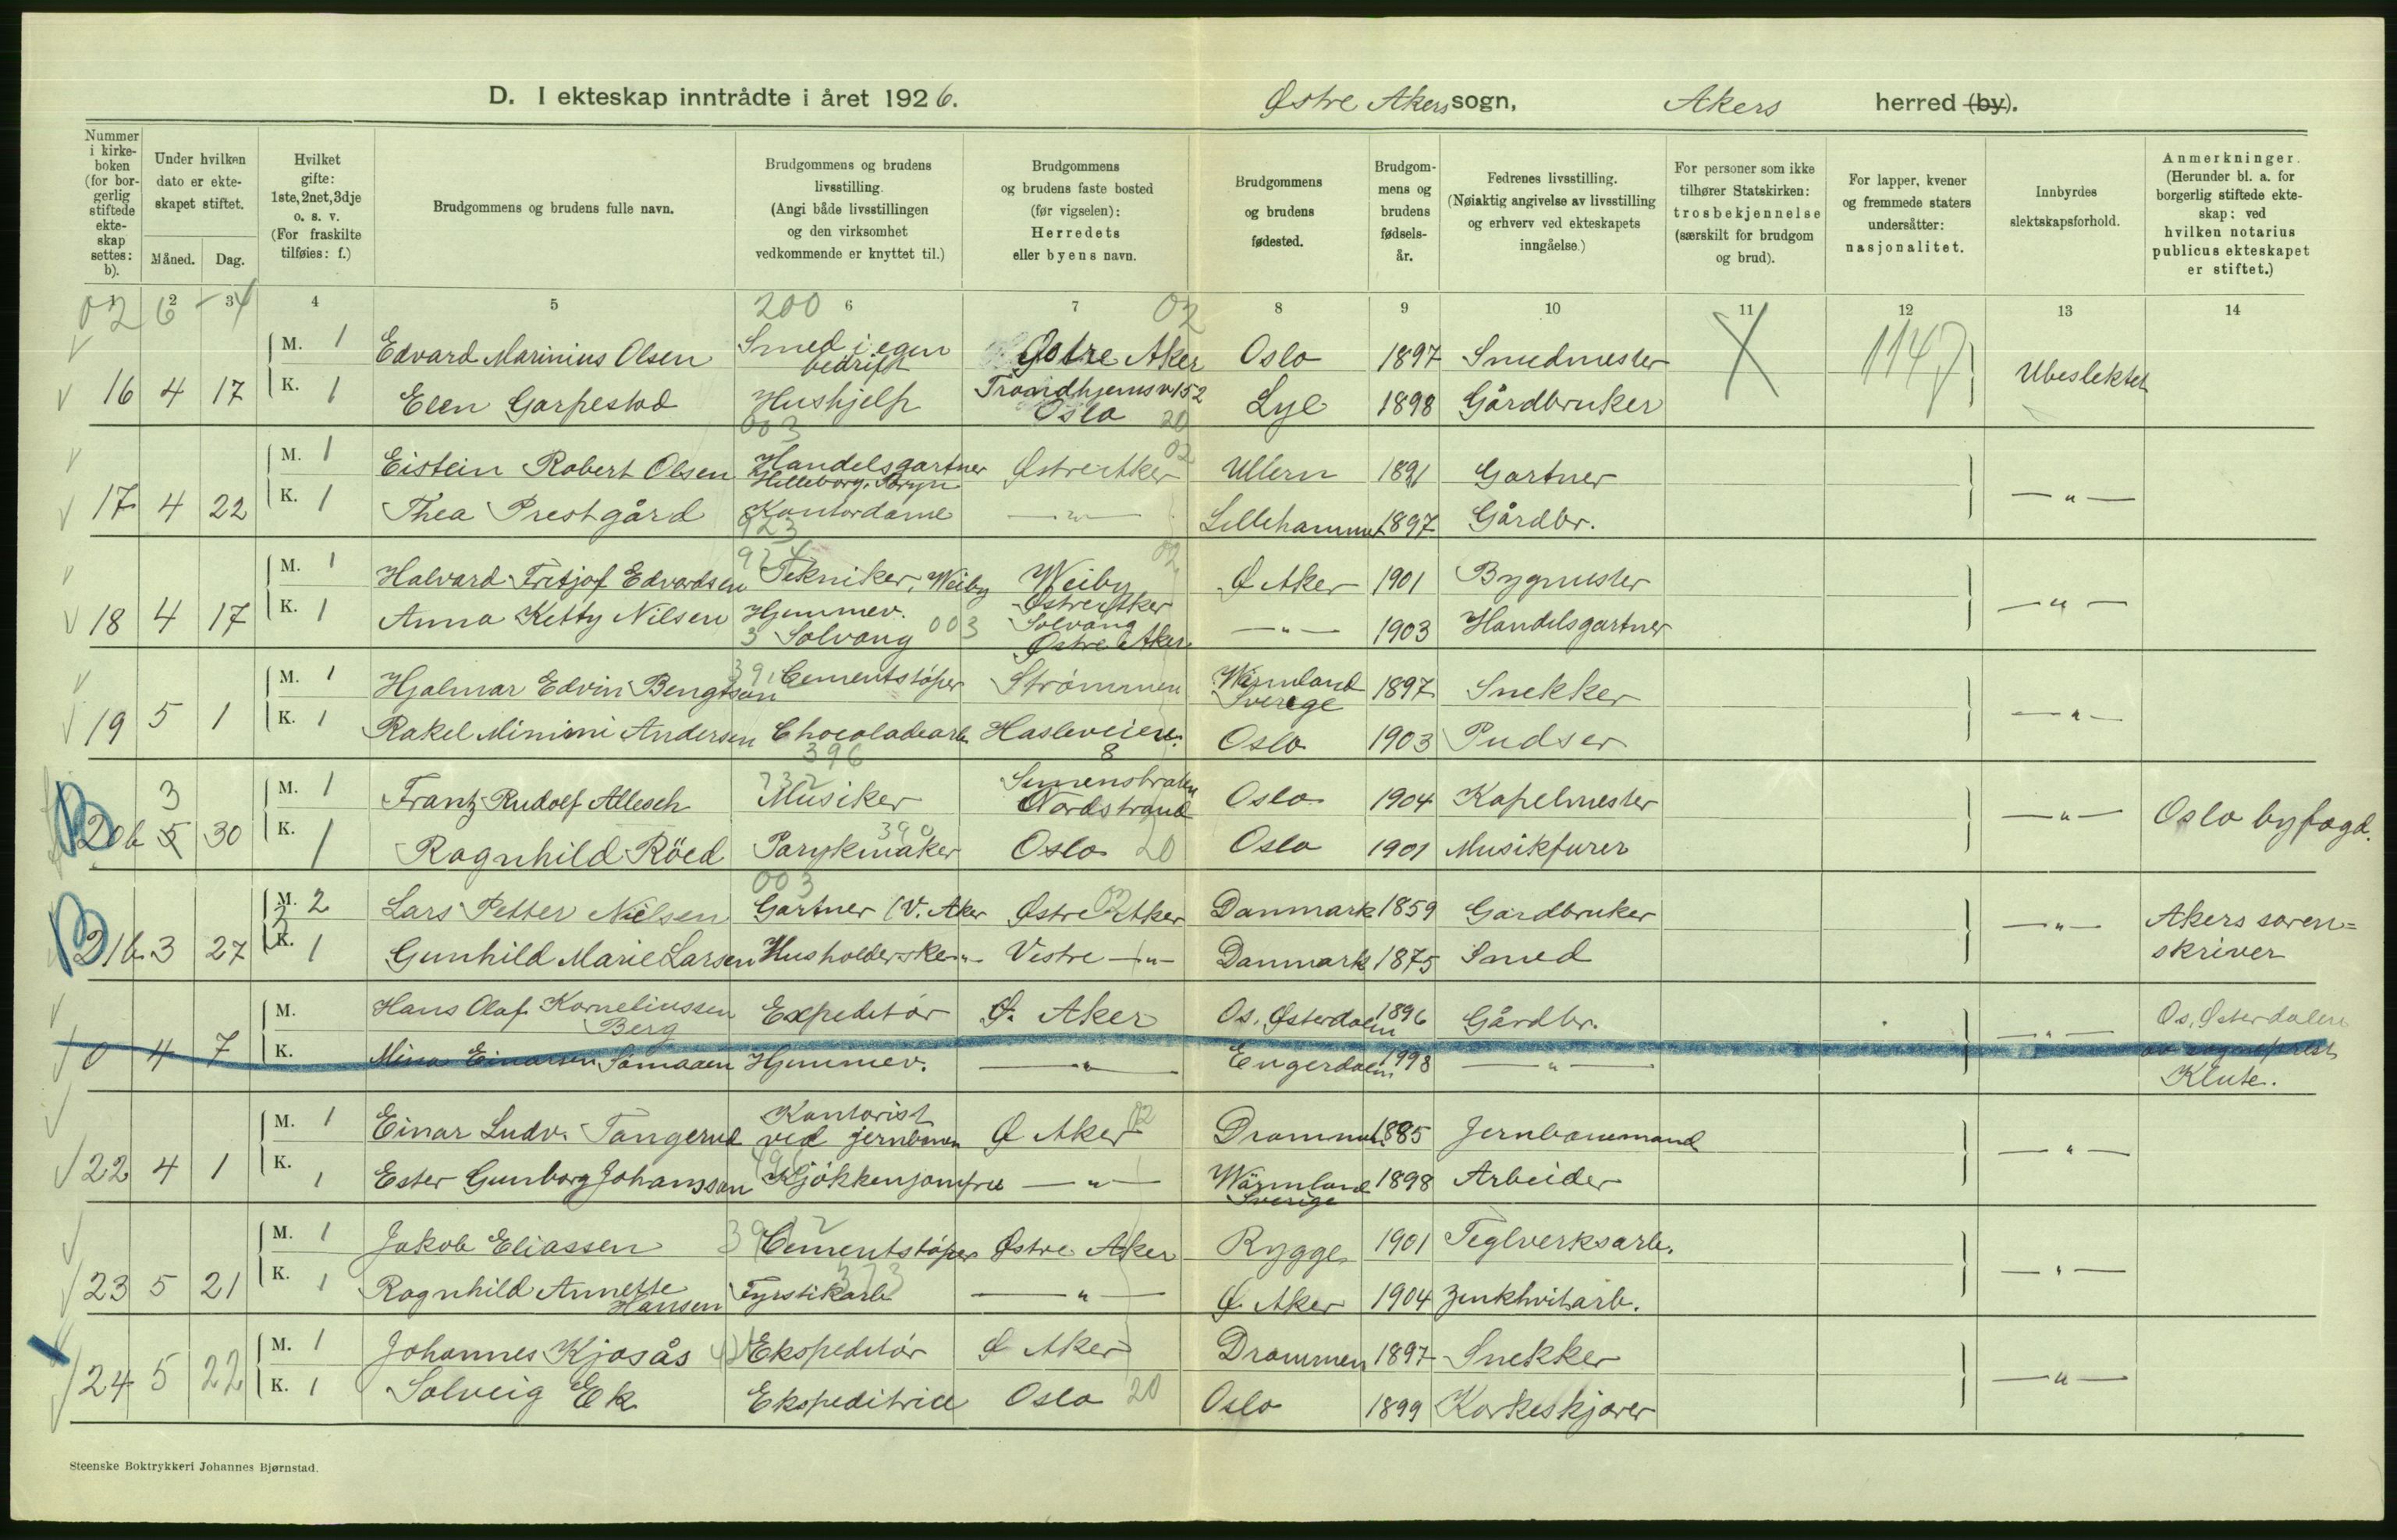 D. I ekteskap inntrådte i året 1926. Østre Akers sogn, Akers herred (by).
Nummer i kirkeboken (for borgerlig stiftede ekteskap settes: b).
Under hvilken dato er ekteskapet stiftet.
Måned. Dag.
Hvilket gifte: 1ste, 2net, 3dje o. s. v. (For fraskilte tilføies: f.)
Brudgommens og brudens fulle navn.
Brudgommens og brudens livsstilling. (Angi både livsstillingen og den virksomhet vedkommende er knyttet til.)
Brudgommens og brudens faste bosted (før vigselen): Herredets eller byens navn.
Brudgommens og brudens fødested.
Brudgommens og brudens fødselsår.
Fedrenes livsstilling. (Nøiaktig angivelse av livsstilling og erhverv ved ekteskapets inngåelse.)
For personer som ikke tilhører Statskirken: trosbekjennelse (særskilt for brudgom og brud).
For lapper, kvener og fremmede staters undersåtter: nasjonalitet.
Innbyrdes slektskapsforhold.
Anmerkninger. (Herunder bl. a. for borgerlig stiftede ekteskap: ved hvilken notarius publicus ekteskapet er stiftet.)
1 2 3 4 5 6 7 8 9 10 11 12 13 14
02 6 - 4 200 02 1147
M. 1 Edvard Marinius Olsen Smed i egen bedrift Østre Aker Oslo 1897 Smedmester
16 4 17 K. 1 Elen Garpestad Hushjelp Trondhjemsv 152 Oslo 20 Lye 1898 Gårdbruker Ubeslektet
003 02
M. 1 Eistein Robert Olsen Handelsgartner Hilleborg, Bryn Østre Aker Ullern 1891 Gartner
17 4 22 K. 1 Thea Prestgård Kontordame —"— Lillehammer 1897 Gårdbr. —"—
923
924 02
M. 1 Halvard Fritjof Edvardsen Tekniker, Weiby Weiby Østre Aker Ø Aker 1901 Bygmester
18 4 17 K. 1 Anna Ketty Nilsen Hjemmev. Solvang 003 Solvang Østre Aker —"— 1903 Handelsgartner —"—
M. 1 Hjalmar Edvin Bengtson 391 Cementstøper Strømmen Wärmland Sverige 1897 Snekker
19 5 1 K. 1 Rakel Minimi Andersen Chocoladearb. Hasleveien 8 Oslo 1903 Pudser —"—
396
M. 1 Frantz Rudolf Allesch 732 Musiker Simenstraten Nordstrand Oslo 1904 Kapelmester
20 b 3 5 30 K. 1 Ragnhild Röed 390 Parykmaker Oslo 20 Oslo 1901 Musikfurer —"— Oslo byfogd.
003
M. 2 Lars Petter Nielsen Gartner (V. Aker Østre Aker 02 Danmark 1859 Gardbruker
21 b. 3 27 K. 1 Gunhild Marie Larsen Husholderske —"— Vestre —"— Danmark 1875 Smed —"— Akers sorenskriver
M. Hans Olaf Korneliussen Berg Expeditør Ø. Aker Os, Østerdalen 1896 Gårdbr.
0 4 7 K. Mina Einarsen Sømaaen Hjemmev. —"— Engerdalen 1998 —"— —"— Os, Østerdalen av sogneprest Klute.
M. 1 Einar Ludv. Tangerud Kontorist ved jernbanen Ø Aker 02 Drammen 1885 Jernbanemand
22 4 1 K. 1 Ester Gunborg Johansson Kjøkkenjomfru —"— Wärmland Sverige 1898 Arbeider —"—
M. 1 Jakob Eliassen Cementstøper Østre Aker Rygge 1901 Teglverksarb.
23 5 21 K. 1 Ragnhild Annette Hansen 373 Fyrstikarb —"— Ø. Aker 1904 Zinkhvitarb. —"—
M. 1 Johannes Kjosås Ekspeditør Ø Aker Drammen 1897 Snekker
24 5 22 K. 1 Solveig Ek Ekspeditrice Oslo 20 Oslo 1899 Korkeskjærer —"—
Steenske Boktrykkeri Johannes Bjørnstad.